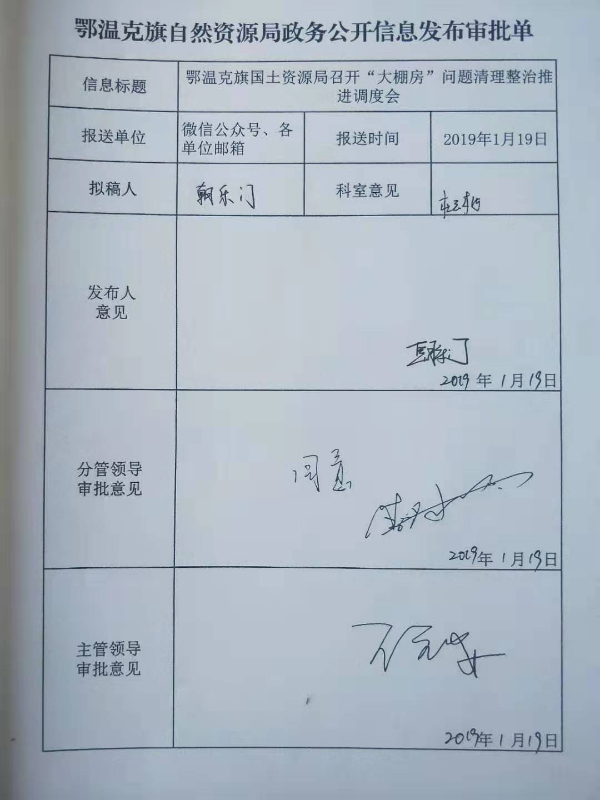 鄂温克旗自然资源局政务公开信息发布审批单
信息标题
鄂温克旗国土资源局召开“大棚房”问题清理整治推
进调度会
报送单位
微信公众号、各
单位邮箱
报送时间
2019年1月19日
拟稿人
朝乐门
科室意见
发布人
意见
2019年1月19日
分管领导
审批意见
同意
2019年1月19日
主管领导
审批意见
2019年1月19日